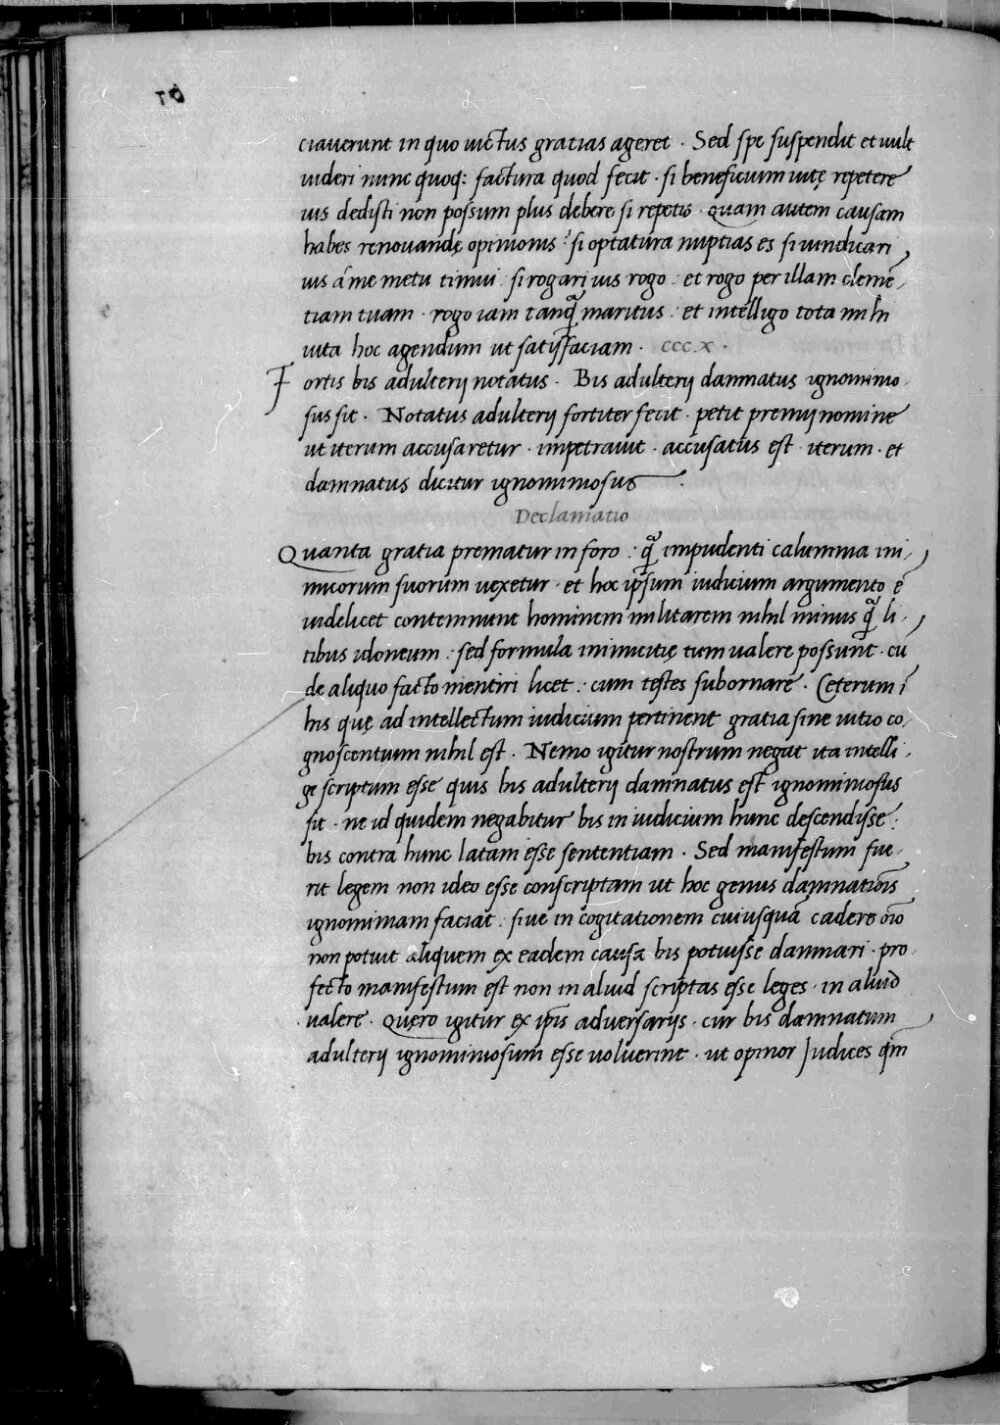 ciauerunt in quo uictus gratias ageret · Sed spe suspendit et uult
uideri nunc quoq: factura quod fecit · si beneficium uitę repetere
uis dedisti non possum plus debere si repetis · quam autem causam
habes renouandę opinionis : si optatura nuptias es si uindicari
uis á me metu timui · si rogari uis rogo : et rogo per illam clemē,
tiam tuam · rogo iam tanq̃ maritus : et intelligo tota mihi
uita hoc agendum ut satisfaciam · ccc.x ·
Fortis bis adulterij notatus · Bis adulterij damnatus ignominio,
sus sit · Notatus adulterij fortiter fecit · petit premij nomine
ut iterum accusaretur · impetrauit · accusatus est · iterum · et
damnatus dicitur ignominiosus .
Declamatio
Quanta gratia prematur in foro : q̃ impudenti calumnia ini,
micorum suorum uexetur · et hoc ipsum iudicium argumento ē
uidelicet contemnunt hominem militarem nihil minus q̃ li,
tibus idoneum : sed formula inimicitię tum ualere possunt · cū
de aliquo facto mentiri licet : cum testes subornare · Ceterum ī
his quę ad intellectum iudicium pertinent gratia sine uitio co,
gnoscentium nihil est · Nemo igitur nostrum negat ita intelli,
ge scriptum esse quis bis adulterij damnatus est ignominiosus
sit · ne id quidem negabitur bis in iudicium hunc descendisse :
bis contra hunc latam esse sententiam · Sed manifestum fue,
rit legem non ideo esse conscriptam ut hoc genus damnatiōis
ignominiam faciat : siue in cogitationem cuiusquā cadere oīo
non potuit aliquem ex eadem causa bis potuisse damnari · pro,
fecto manifestum est non in aliud scriptas esse leges · in aliud
ualere · Quęro igitur ex ip̄is aduersarijs · cur bis damnatum
adulterij ignominiosum esse uoluerint · ut opinor Judices qm̄